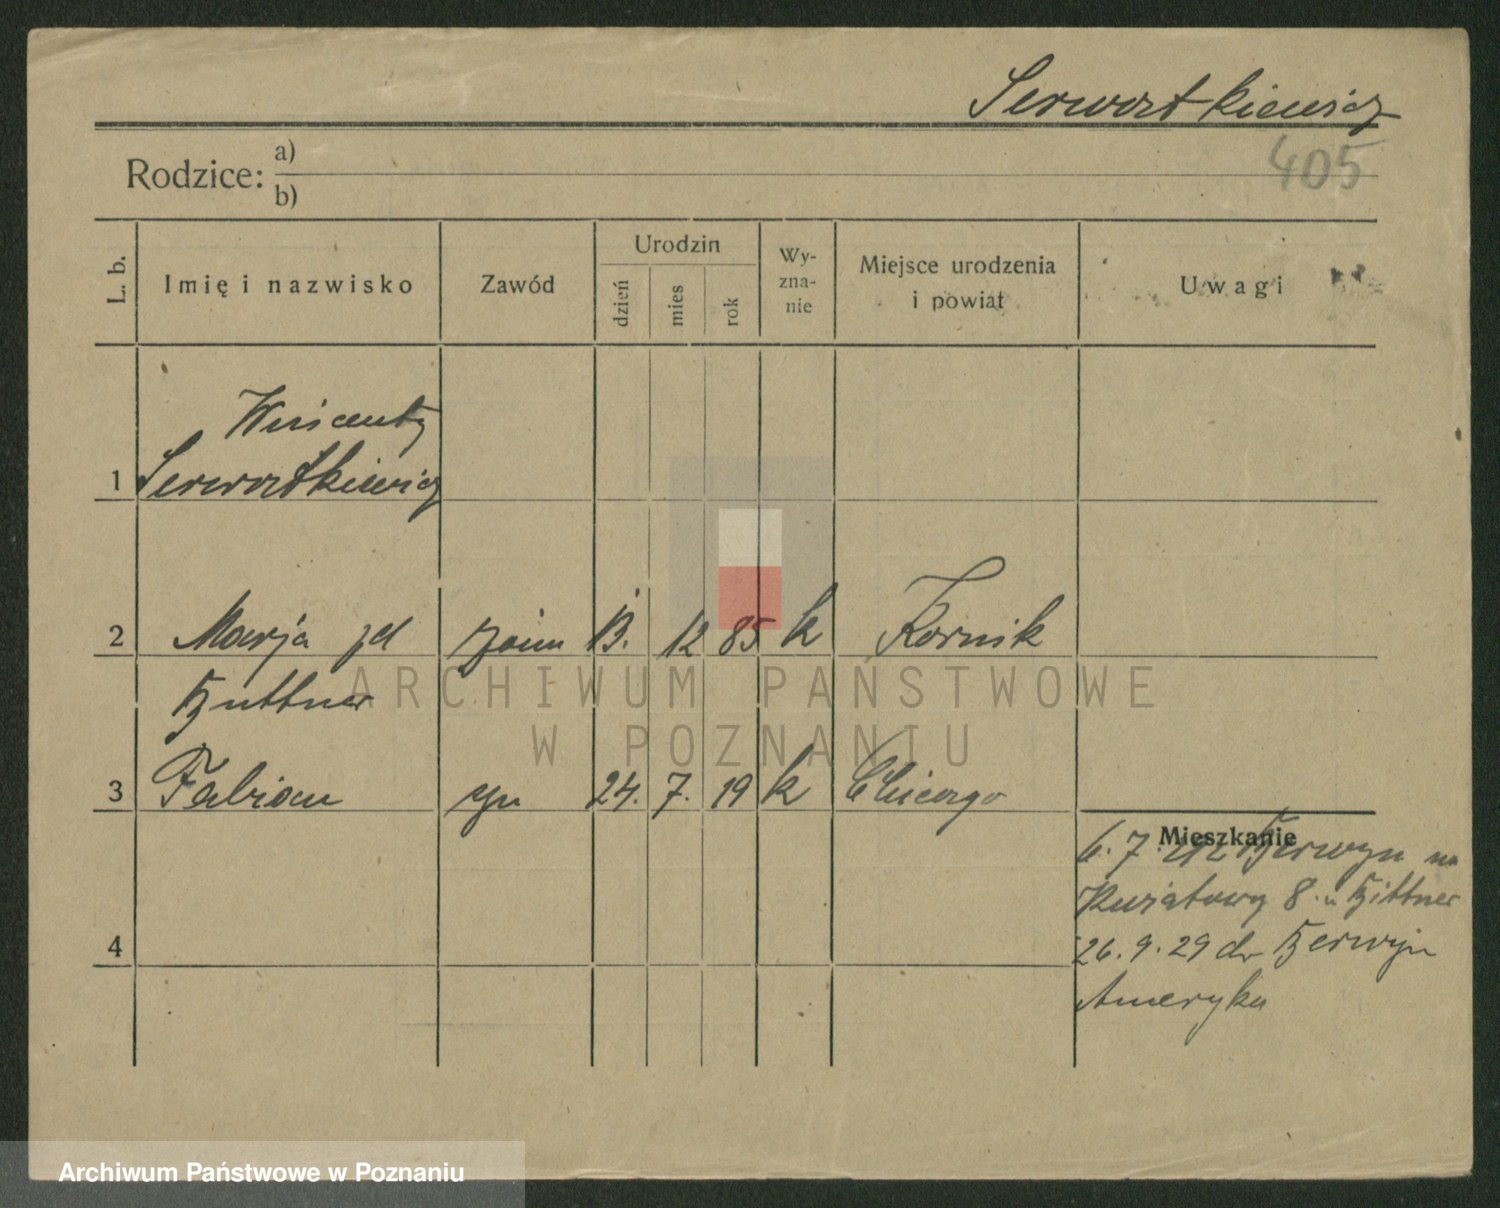 Serwatkiewicz
405
Rodzice: a)
b)
L. b.
Imię i nazwisko
Zawód
Urodzin
dzień
mies
rok
Wy-
zna-
nie
Miejsce urodzenia
i powiat
Uwagi
Wincenty
1 Serwatkiewicz
2 Marja zd żona 13. 12 85 k Kórnik
Buttner
3 Fabian syn 24. 7. 19 k Chicago
4
Mieszkanie
6. 7. Berwyn na
Kwiatowy 8 u Bittner
26. 9. 29 do Berwyn
Ameryka
ARCHIWUM PAŃSTWOWE
W POZNANIU
Archiwum Państwowe w Poznaniu